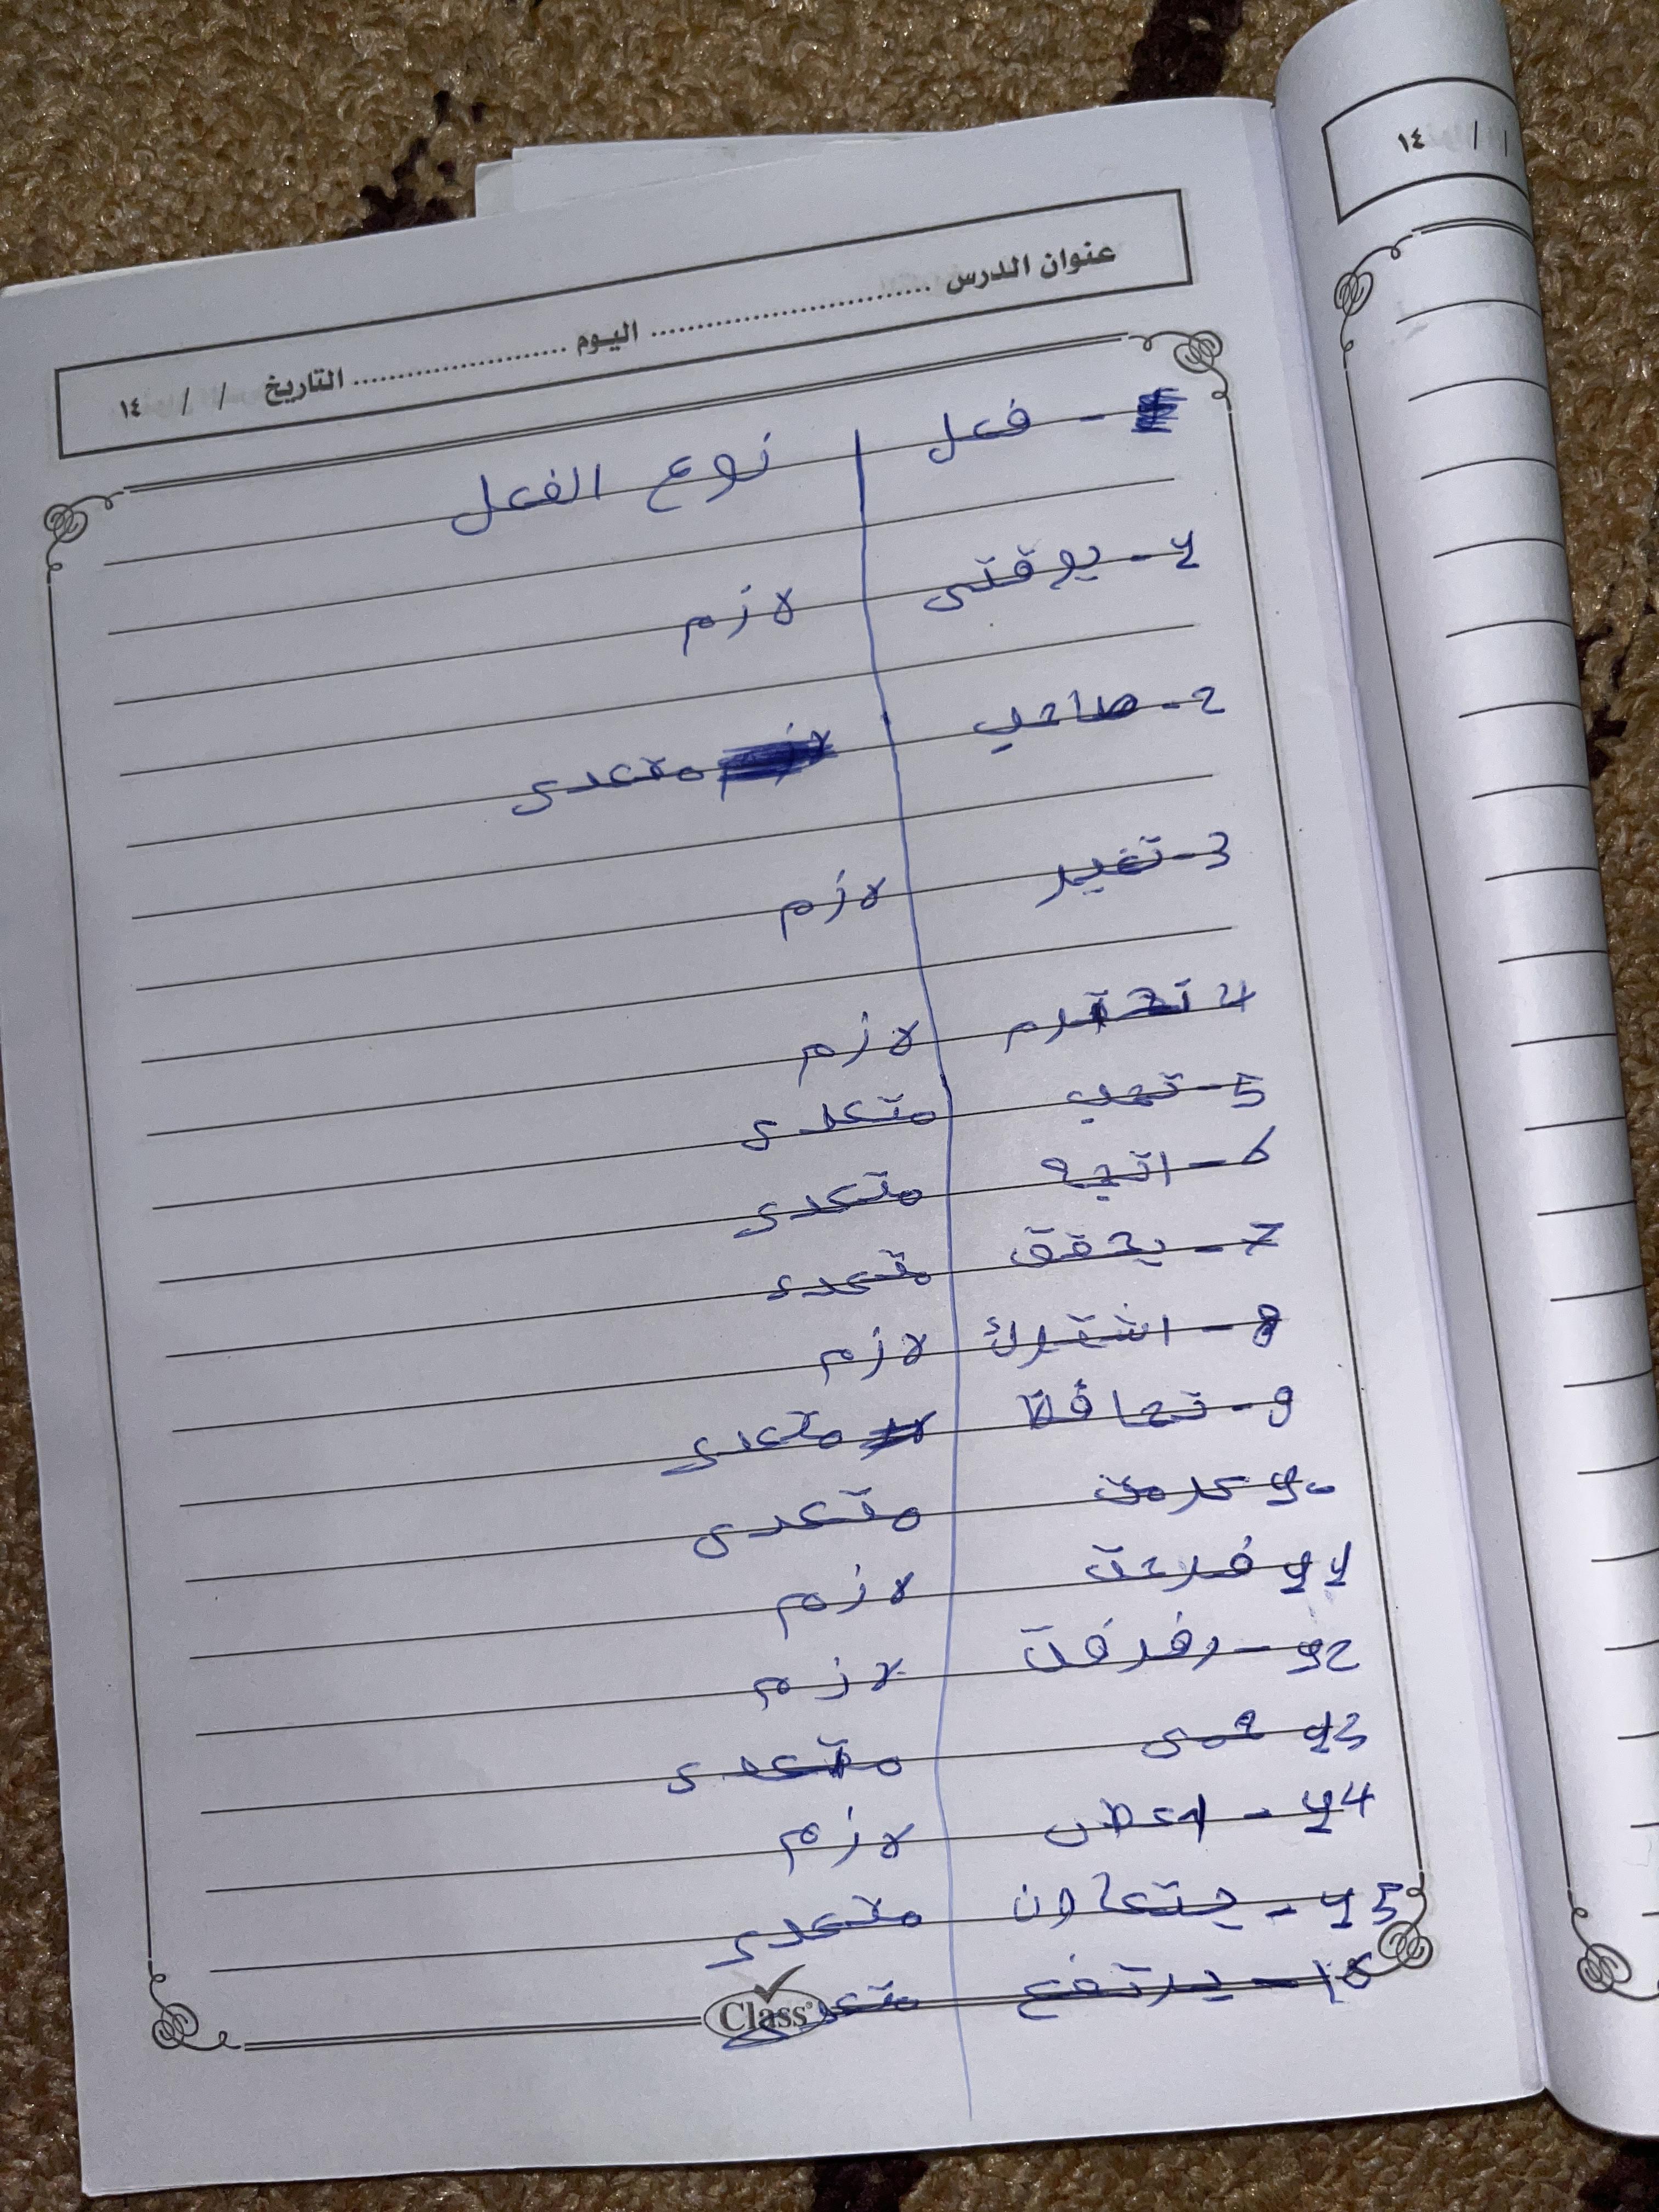 عنوان الدرس ........................ اليوم .................. التاريخ / / ١٤
- فعل | نوع الفعل
1- يوقتى | لازم
2- صاحب | متعدى
3- تغير | لازم
4 تحترم | لازم
5- تهب | متعدى
6- اتجه | متعدى
7- يحقق | متعدى
8- اشترك | لازم
9- تحافظ | متعدى
10 كرمت | متعدى
11 فرحت | لازم
12- رفرفت | لازم
13 | متعدى
14- | لازم
15- يتعاون | متعدى
16- يرتفع | متعدى
Class
/ / ١٤